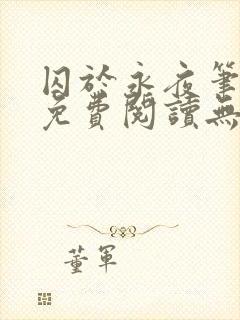 囚於永夜筆
免費閱讀無
董軍